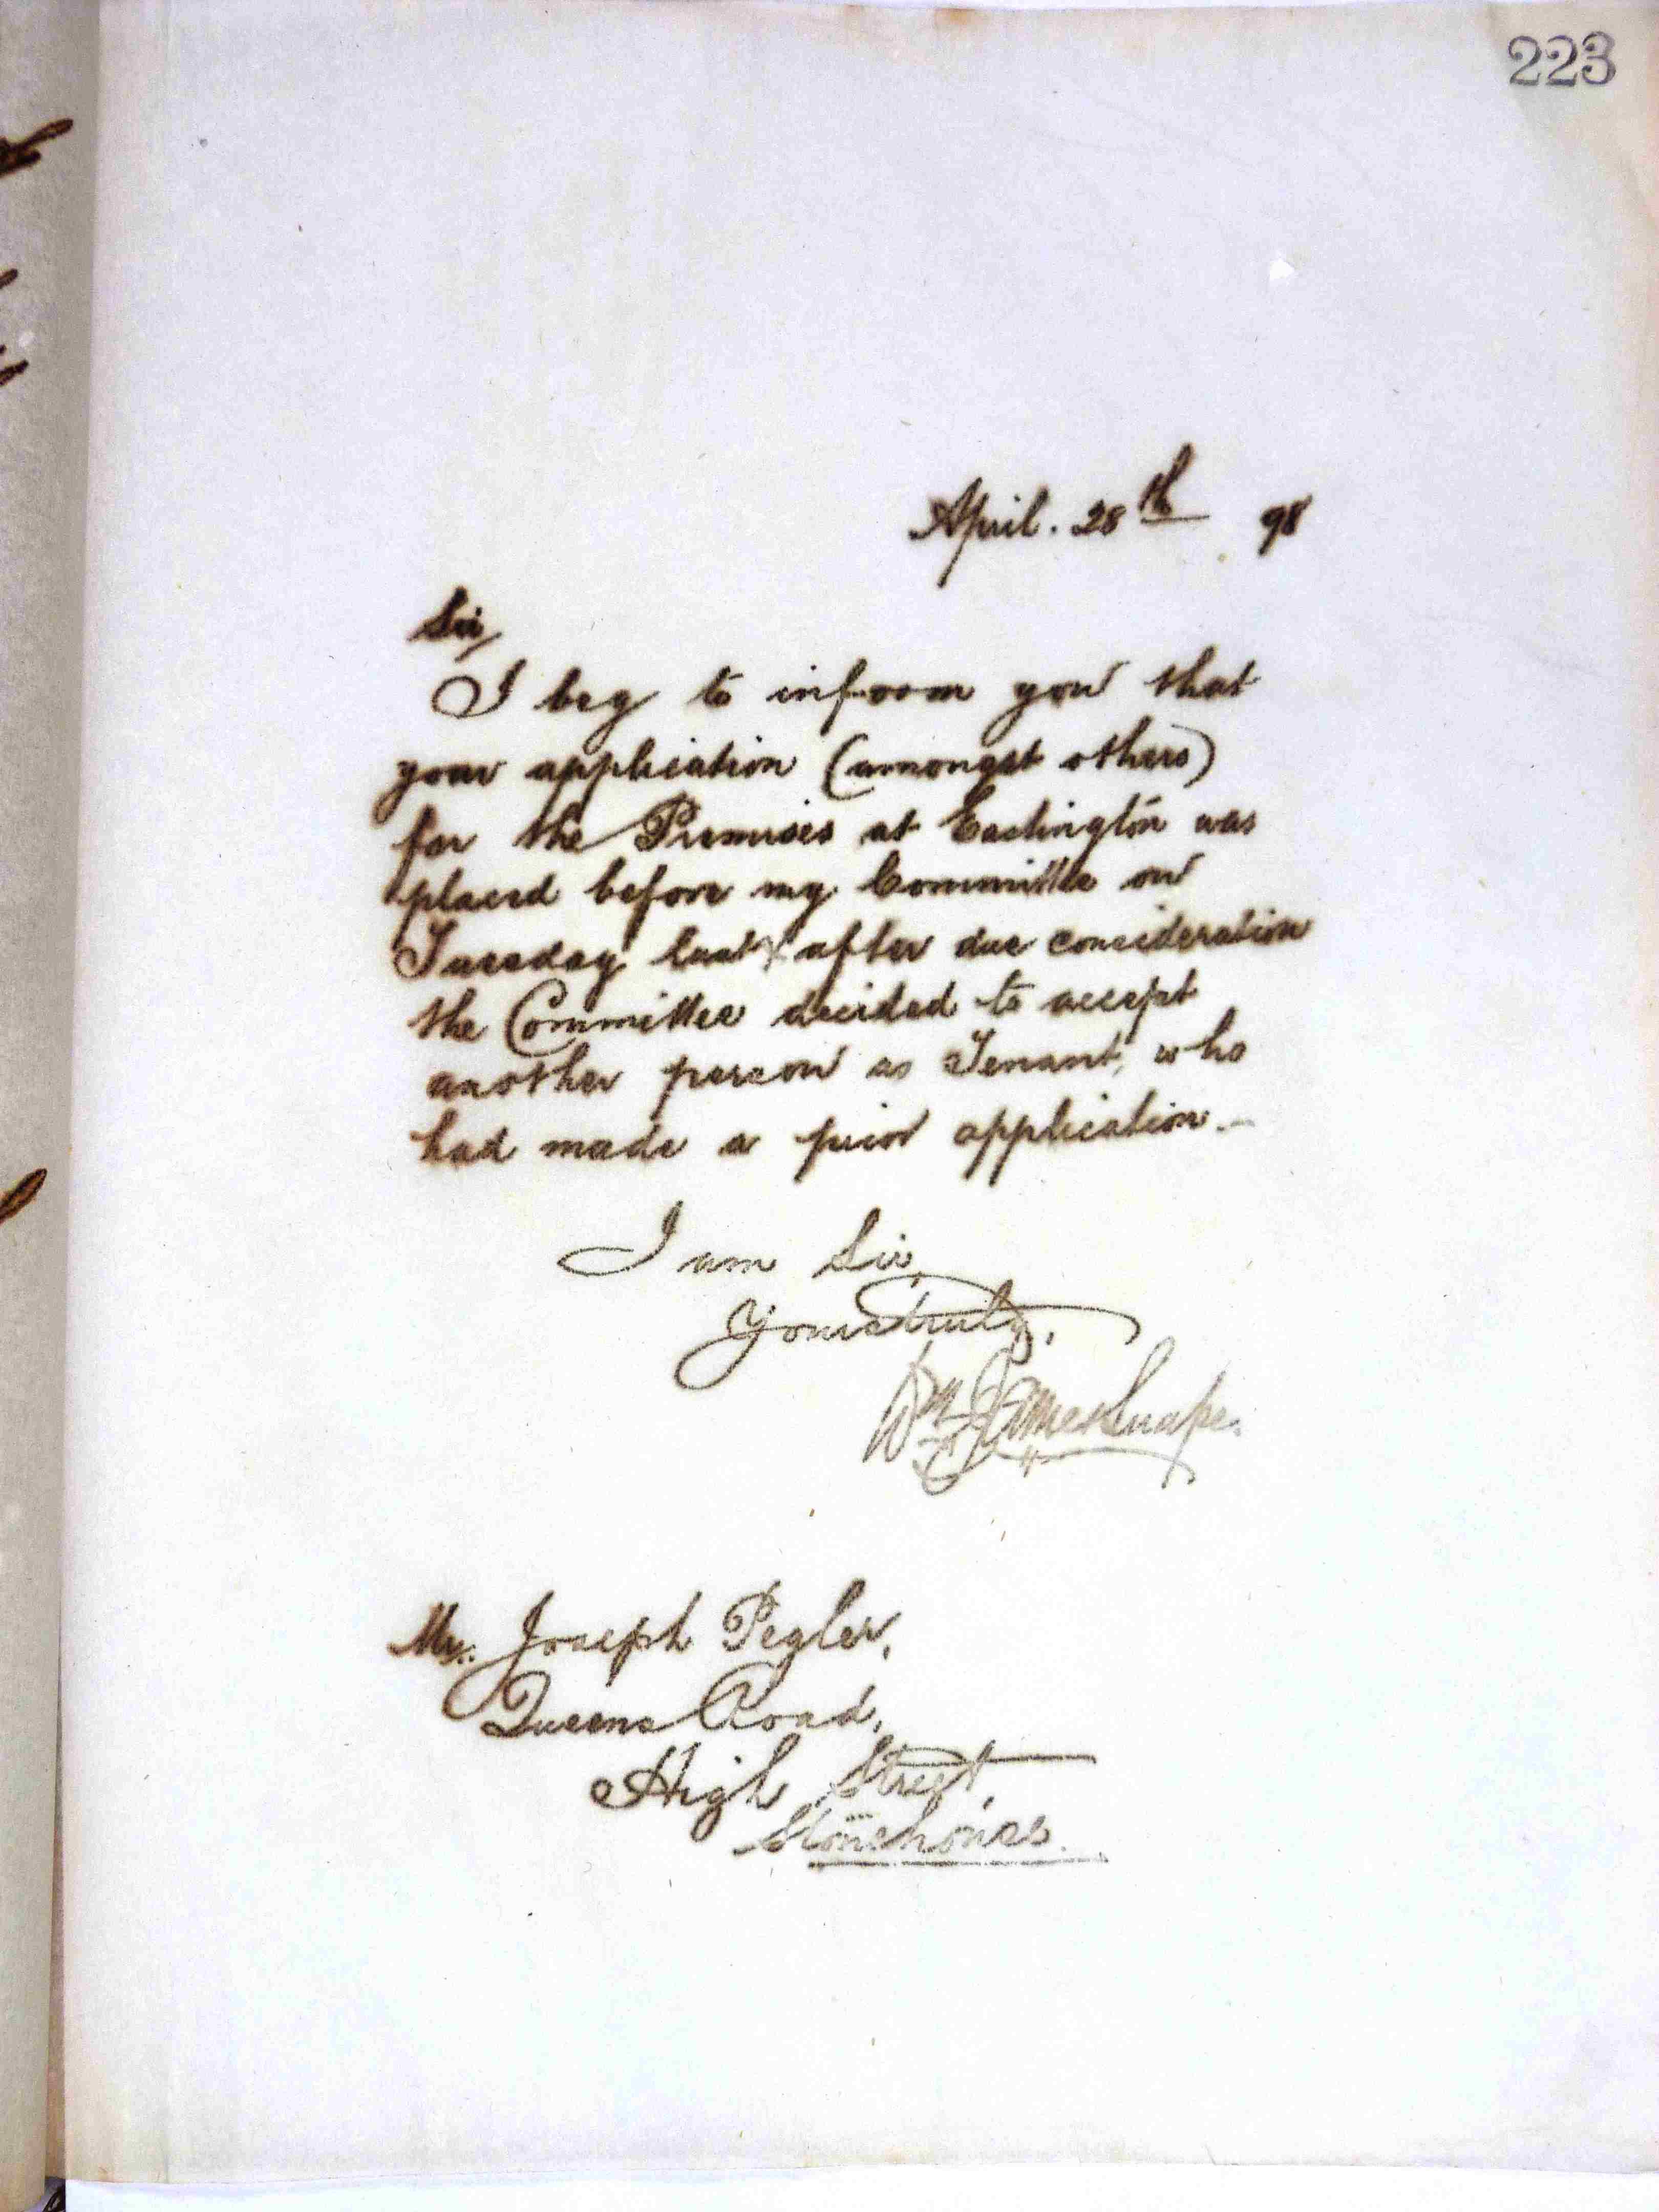 223
April. 28th 98
Sir,
I beg to inform you that
your application (amongst others)
for the Premises at Eastington was
placed before my Committee on
Tuesday last & after due consideration
the Committee decided to accept
another person as Tenant, who
had made a prior application. -
I am Sir,
Yours truly,
Wm James Snape.
Mr. Joseph Pegler,
Queens Road,
High Street,
Stonehouse.